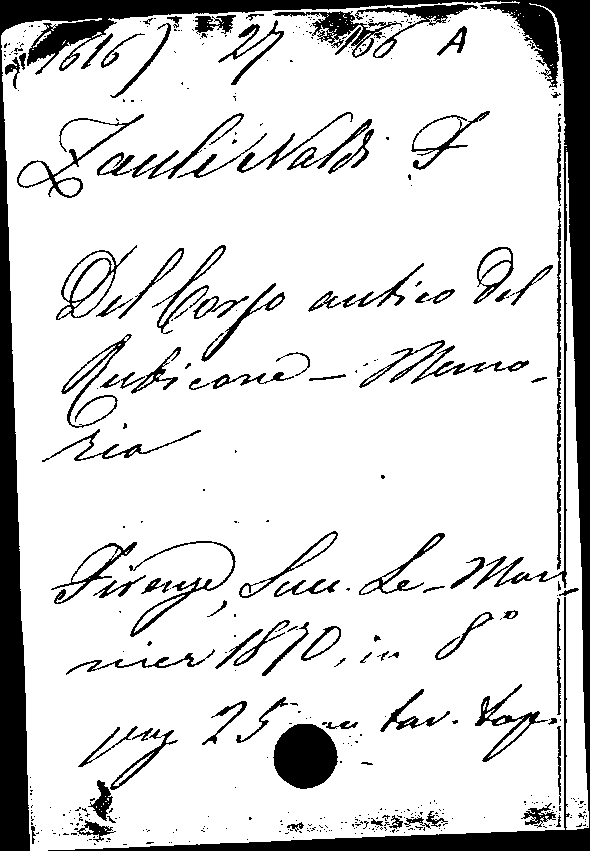 (1616) 27 166 A
Zauli Naldi F
Del Corso antico del
Rubicone - Memo-
ria
Firenze, Succ. Le-Mon
nier 1870, in 8°
pag 25 tav. top.